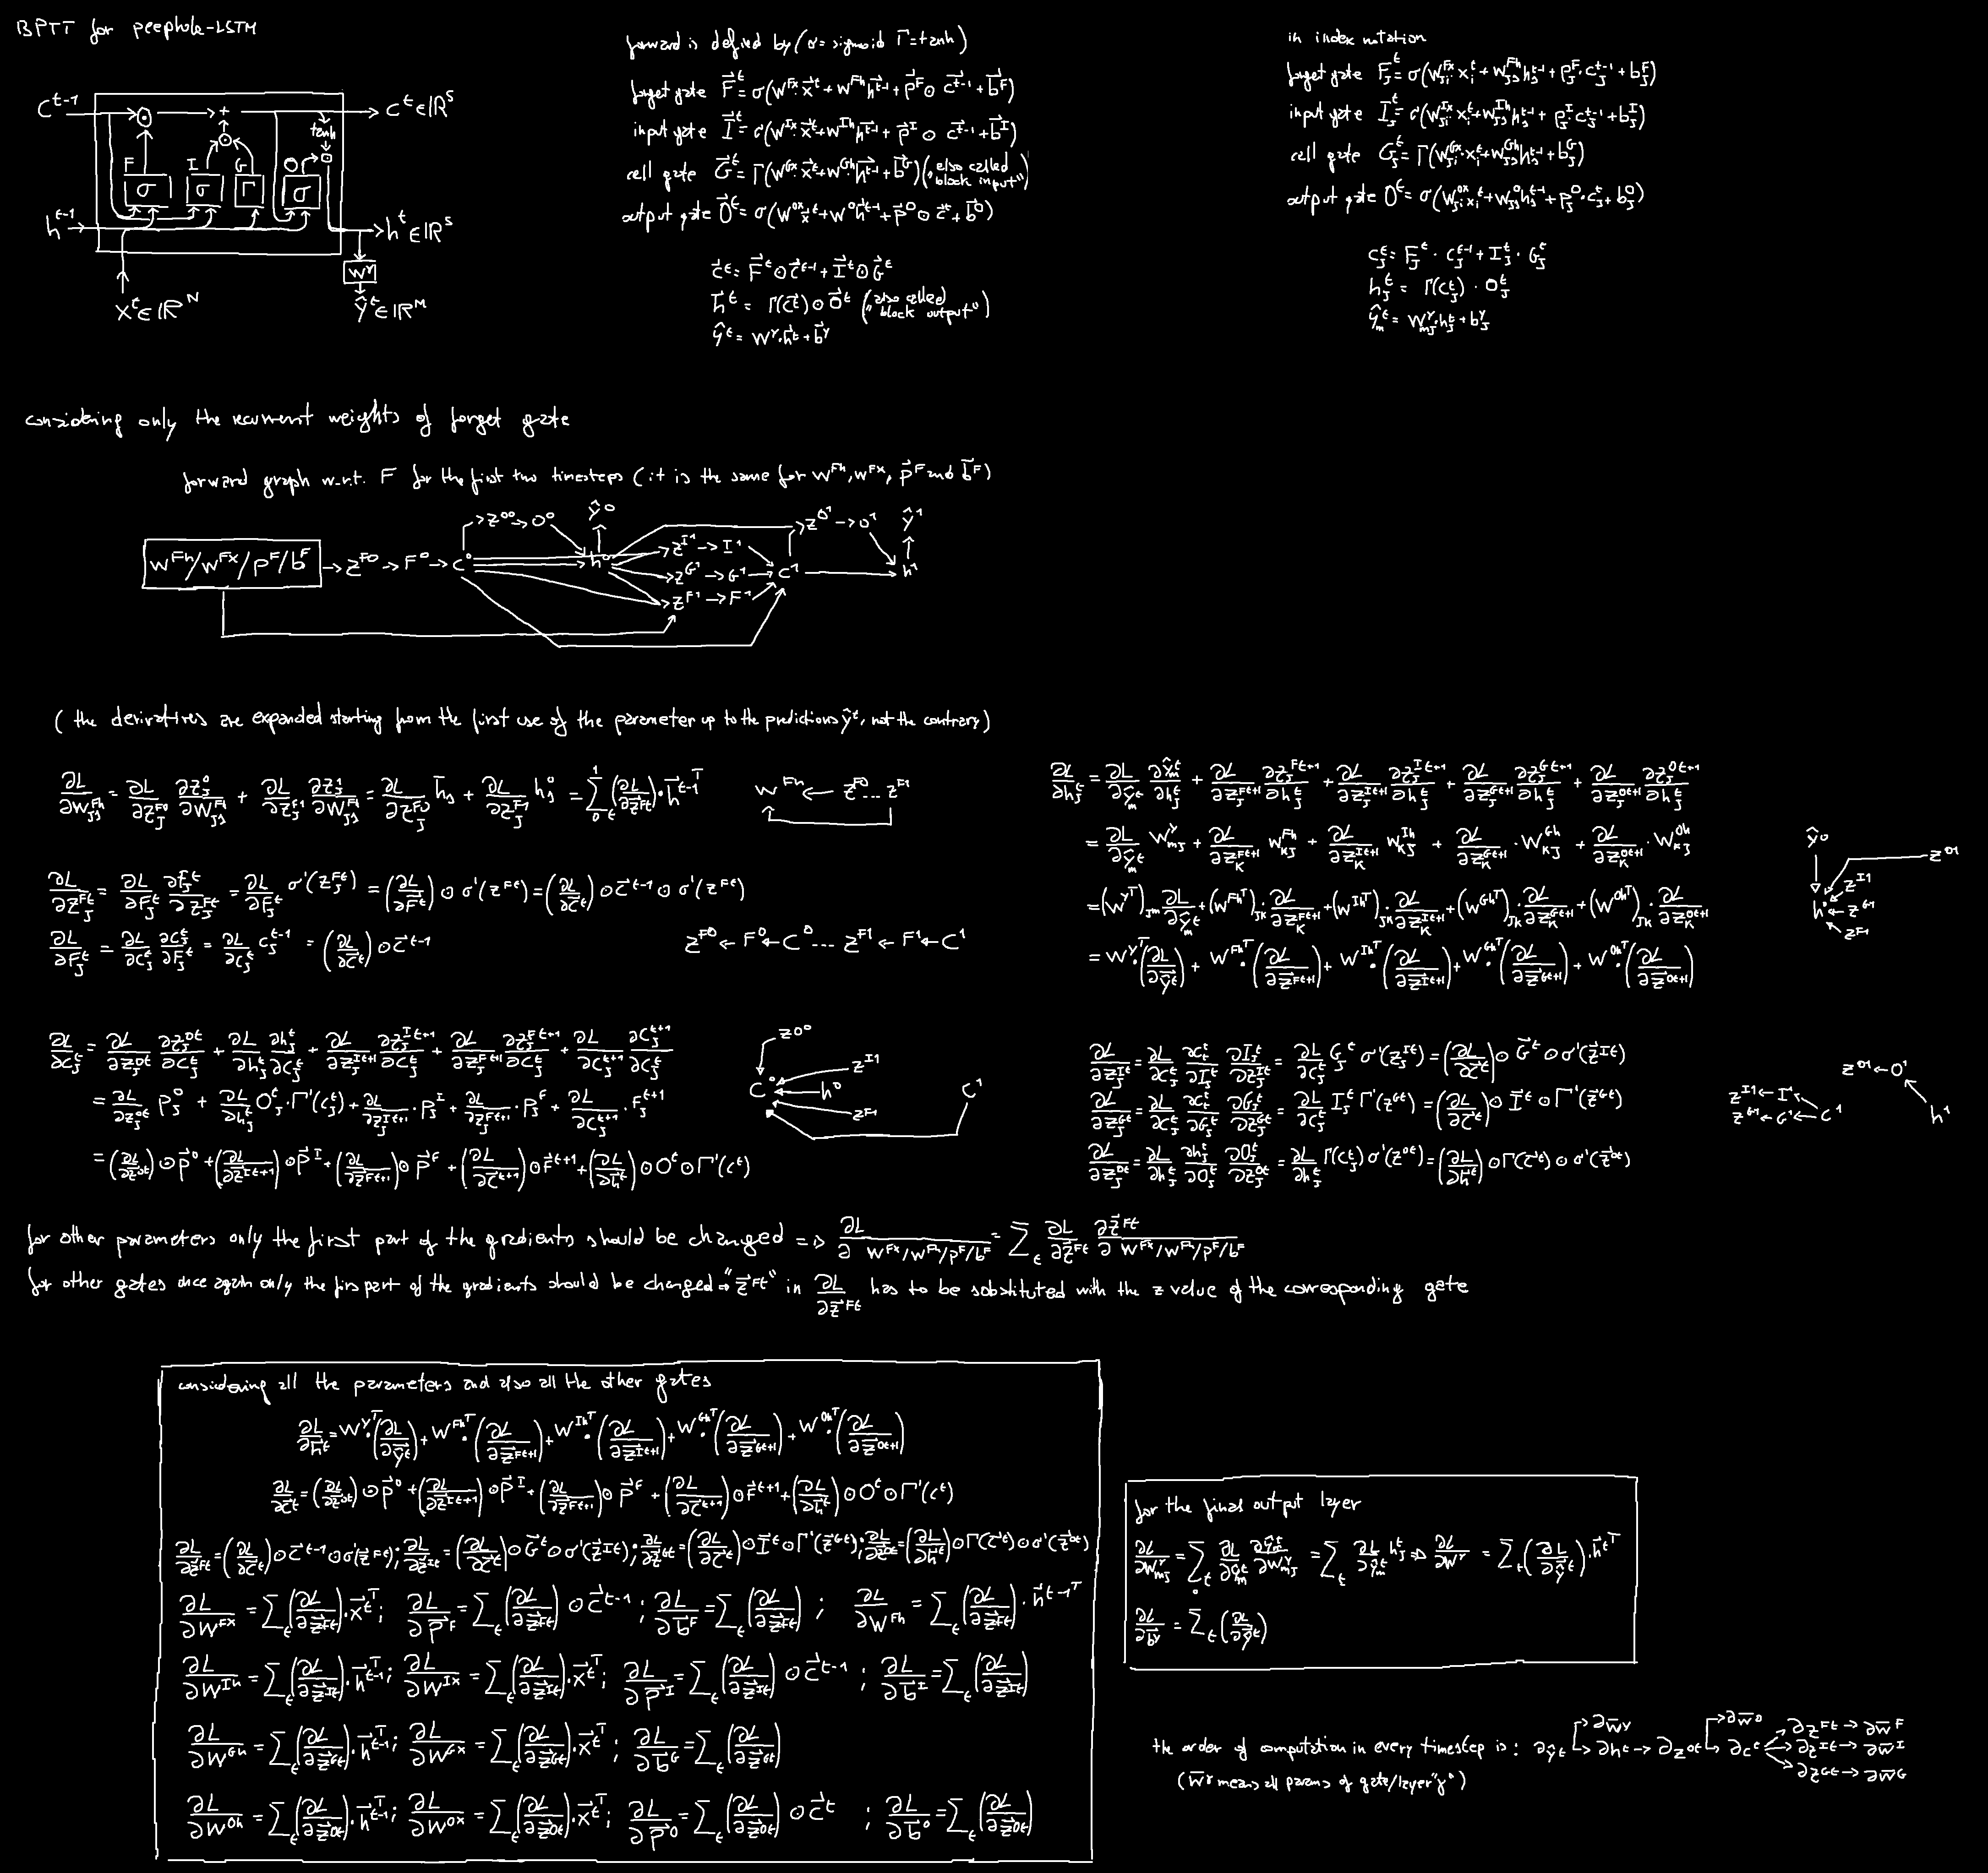 BPTT for peephole-LSTM
c^{t-1}
c^t∈ℝ^S
tanh
F I G O
σ σ Γ σ
h^{t-1}
h^t∈ℝ^S
W^Y
x^t∈ℝ^N
ŷ^t∈ℝ^M
forward is defined by (σ=sigmoid Γ=tanh)
forget gate F^t=σ(W^{Fx}·x^t+W^{Fh}h^{t-1}+p^F⊙c^{t-1}+b^F)
input gate I^t=σ(W^{Ix}·x^t+W^{Ih}h^{t-1}+p^I⊙c^{t-1}+b^I)
cell gate G^t=Γ(W^{Gx}·x^t+W^{Gh}·h^{t-1}+b^G) ("also called block input")
output gate O^t=σ(W^{Ox}x^t+W^Oh^{t-1}+p^O⊙c^t+b^O)
c^t=F^t⊙c^{t-1}+I^t⊙G^t
h^t=Γ(c^t)⊙O^t (also called "block output")
ŷ^t=W^Y·h^t+b^Y
in index notation
forget gate F_j^t=σ(W_{ji}^{Fx}·x_i^t+W_{js}^{Fh}h_s^{t-1}+p_j^F·c_j^{t-1}+b_j^F)
input gate I_j^t=σ(W_{ji}^{Ix}·x_i^t+W_{js}^{Ih}h_s^{t-1}+p_j^I c_j^{t-1}+b_j^I)
cell gate G_j^t=Γ(W_{ji}^{Gx}·x_i^t+W_{js}^{Gh}h_s^{t-1}+b_j^G)
output gate O^t=σ(W_{ji}^{Ox}x_i^t+W_{js}^O h_s^{t-1}+p_j^O·c_j^t+b_j^O)
c_j^t=F_j^t·c_j^{t-1}+I_j^t·G_j^t
h_j^t=Γ(c_j^t)·O_j^t
ŷ_m^t=W_{mj}^Y·h_j^t+b_j^Y
considering only the recurrent weights of forget gate
forward graph w.r.t. F for the first two timesteps (it is the same for W^{Fh},W^{Fx}, p^F and b^F)
W^{Fh}/W^{Fx}/p^F/b^F → z^{F0}→F^0→c^0
→z^{O0}→O^0 ŷ^0 h^0
z^{I1}→I^1
z^{G1}→G^1→c^1
z^{F1}→F^1
z^{O1}→O^1 ŷ^1 h^1
(the derivatives are expanded starting from the first use of the parameter up to the predictions ŷ^t, not the contrary)
∂L/∂W_{js}^{Fh}=∂L/∂z_j^{F0} ∂z_j^0/∂W_{js}^{Fh}+∂L/∂z_j^{F1} ∂z_j^1/∂W_{js}^{Fh}=∂L/∂z_j^{F0} h_s^-+∂L/∂z_j^{F1} h_s^0=∑_{0 t}^1(∂L/∂z^{Ft})·h^{t-1 T}
W^{Fh}←z^{F0}...z^{F1}
∂L/∂z_j^{Ft}=∂L/∂F_j^t ∂F_j^t/∂z_j^{Ft}=∂L/∂F_j^t σ'(z_j^{Ft})=(∂L/∂F^t)⊙σ'(z^{Ft})=(∂L/∂c^t)⊙c^{t-1}⊙σ'(z^{Ft})
∂L/∂F_j^t=∂L/∂c_j^t ∂c_j^t/∂F_j^t=∂L/∂c_j^t c_j^{t-1}=(∂L/∂c^t)⊙c^{t-1}
z^{F0}←F^0←c^0...z^{F1}←F^1←c^1
∂L/∂c_j^t=∂L/∂z^{Ot} ∂z_j^{Ot}/∂c_j^t+∂L/∂h_j^t ∂h_j^t/∂c_j^t+∂L/∂z_j^{It+1} ∂z_j^{It+1}/∂c_j^t+∂L/∂z_j^{Ft+1} ∂z_j^{Ft+1}/∂c_j^t+∂L/∂c_j^{t+1} ∂c_j^{t+1}/∂c_j^t
=∂L/∂z_j^{Ot} p_j^O+∂L/∂h_j^t O_j^t·Γ'(c_j^t)+∂L/∂z_j^{It+1}·p_j^I+∂L/∂z_j^{Ft+1}·p_j^F+∂L/∂c_j^{t+1}·F_j^{t+1}
=(∂L/∂z^{Ot})⊙p^O+(∂L/∂z^{It+1})⊙p^I+(∂L/∂z^{Ft+1})⊙p^F+(∂L/∂c^{t+1})⊙F^{t+1}+(∂L/∂h^t)⊙O^t⊙Γ'(c^t)
z^{O0} z^{I1} c^0 h^0 z^{F1} c^1
∂L/∂h_j^t=∂L/∂ŷ_m^t ∂ŷ_m^t/∂h_j^t+∂L/∂z_j^{Ft+1} ∂z_j^{Ft+1}/∂h_j^t+∂L/∂z_j^{It+1} ∂z_j^{It+1}/∂h_j^t+∂L/∂z_j^{Gt+1} ∂z_j^{Gt+1}/∂h_j^t+∂L/∂z_j^{Ot+1} ∂z_j^{Ot+1}/∂h_j^t
=∂L/∂ŷ_m^t W_{mj}^Y+∂L/∂z_k^{Ft+1} W_{kj}^{Fh}+∂L/∂z_k^{It+1} W_{kj}^{Ih}+∂L/∂z_k^{Gt+1}·W_{kj}^{Gh}+∂L/∂z_k^{Ot+1}·W_{kj}^{Oh}
=(W^{Y T})_{jm} ∂L/∂ŷ_m^t+(W^{Fh T})_{jk}·∂L/∂z_k^{Ft+1}+(W^{Ih T})_{jk}·∂L/∂z_k^{It+1}+(W^{Gh T})_{jk}·∂L/∂z_k^{Gt+1}+(W^{Oh T})_{jk}·∂L/∂z_k^{Ot+1}
=W^{Y T}·(∂L/∂ŷ^t)+W^{Fh T}·(∂L/∂z^{Ft+1})+W^{Ih T}·(∂L/∂z^{It+1})+W^{Gh T}·(∂L/∂z^{Gt+1})+W^{Oh T}·(∂L/∂z^{Ot+1})
ŷ^0 z^{O1} z^{I1} h^0←z^{G1} z^{F1}
∂L/∂z_j^{It}=∂L/∂c_j^t ∂c_j^t/∂I_j^t ∂I_j^t/∂z_j^{It}=∂L/∂c_j^t G_j^t σ'(z_j^{It})=(∂L/∂c^t)⊙G^t⊙σ'(z^{It})
∂L/∂z_j^{Gt}=∂L/∂c_j^t ∂c_j^t/∂G_j^t ∂G_j^t/∂z_j^{Gt}=∂L/∂c_j^t I_j^t Γ'(z^{Gt})=(∂L/∂c^t)⊙I^t⊙Γ'(z^{Gt})
∂L/∂z_j^{Ot}=∂L/∂h_j^t ∂h_j^t/∂O_j^t ∂O_j^t/∂z_j^{Ot}=∂L/∂h_j^t Γ(c_j^t)σ'(z^{Ot})=(∂L/∂h^t)⊙Γ(c^t)⊙σ'(z^{Ot})
z^{O1}←O^1
z^{I1}←I^1
z^{G1}←G^1←c^1
h^1
for other parameters only the first part of the gradients should be changed => ∂L/∂ W^{Fx}/W^{Fh}/p^F/b^F=∑_t ∂L/∂z^{Ft} ∂z^{Ft}/∂ W^{Fx}/W^{Fh}/p^F/b^F
for other gates once again only the firs part of the gradients should be changed→"z^{Ft}" in ∂L/∂z^{Ft} has to be substituted with the z value of the corresponding gate
considering all the parameters and also all the other gates
∂L/∂h^t=W^{Y T}·(∂L/∂ŷ^t)+W^{Fh T}·(∂L/∂z^{Ft+1})+W^{Ih T}·(∂L/∂z^{It+1})+W^{Gh T}·(∂L/∂z^{Gt+1})+W^{Oh T}·(∂L/∂z^{Ot+1})
∂L/∂c^t=(∂L/∂z^{Ot})⊙p^O+(∂L/∂z^{It+1})⊙p^I+(∂L/∂z^{Ft+1})⊙p^F+(∂L/∂c^{t+1})⊙F^{t+1}+(∂L/∂h^t)⊙O^t⊙Γ'(c^t)
∂L/∂z^{Ft}=(∂L/∂c^t)⊙c^{t-1}⊙σ'(z^{Ft});∂L/∂z^{It}=(∂L/∂c^t)⊙G^t⊙σ'(z^{It});∂L/∂z^{Gt}=(∂L/∂c^t)⊙I^t⊙Γ'(z^{Gt});∂L/∂z^{Ot}=(∂L/∂h^t)⊙Γ(c^t)⊙σ'(z^{Ot})
∂L/∂W^{Fx}=∑_t(∂L/∂z^{Ft})·x^{t T}; ∂L/∂p^F=∑_t(∂L/∂z^{Ft})⊙c^{t-1}; ∂L/∂b^F=∑_t(∂L/∂z^{Ft}); ∂L/∂W^{Fh}=∑_t(∂L/∂z^{Ft})·h^{t-1 T}
∂L/∂W^{Ih}=∑_t(∂L/∂z^{It})·h^{t-1 T}; ∂L/∂W^{Ix}=∑_t(∂L/∂z^{It})·x^{t T}; ∂L/∂p^I=∑_t(∂L/∂z^{It})⊙c^{t-1}; ∂L/∂b^I=∑_t(∂L/∂z^{It})
∂L/∂W^{Gh}=∑_t(∂L/∂z^{Gt})·h^{t-1 T}; ∂L/∂W^{Gx}=∑_t(∂L/∂z^{Gt})·x^{t T}; ∂L/∂b^G=∑_t(∂L/∂z^{Gt})
∂L/∂W^{Oh}=∑_t(∂L/∂z^{Ot})·h^{t-1 T}; ∂L/∂W^{Ox}=∑_t(∂L/∂z^{Ot})·x^{t T}; ∂L/∂p^O=∑_t(∂L/∂z^{Ot})⊙c^t; ∂L/∂b^O=∑_t(∂L/∂z^{Ot})
for the final output layer
∂L/∂W_{mj}^Y=∑_t ∂L/∂ŷ_m^t ∂ŷ_m^t/∂W_{mj}^Y=∑_t ∂L/∂ŷ_m^t h_j^t => ∂L/∂W^Y=∑_t(∂L/∂ŷ^t)·h^{t T}
∂L/∂b^Y=∑_t(∂L/∂ŷ^t)
the order of computation in every timestep is: ∂ŷ^t→∂W̄^Y →∂h^t→∂z^{Ot}→∂W̄^O →∂c^t →∂z^{Ft}→∂W̄^F →∂z^{It}→∂W̄^I →∂z^{Gt}→∂W̄^G
(W̄^γ means all params of gate/layer "γ")